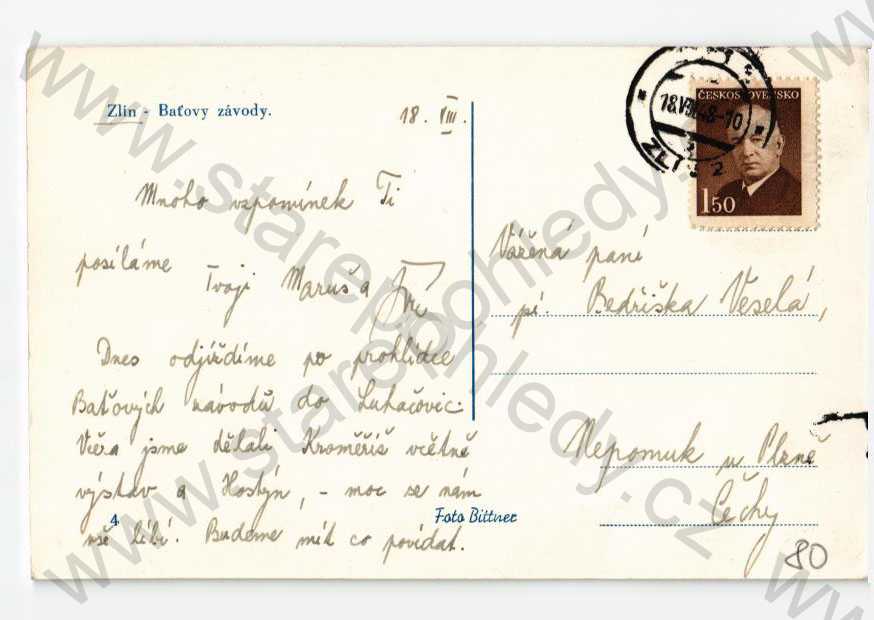 Zlín - Baťovy závody.
18. VIII.
Mnoho vzpomínek Ti
posíláme
Tvoji Maruš a Jiří
Dnes odjíždíme po prohlídce
Baťových závodů do Luhačovic.
Včera jsme dělali Kroměříž včetně
výstav a Hostýn, - moc se nám
vše líbí. Budeme mít co povídat.
4
Foto Bittner
ČESKOSLOVENSKO
1 50
18.VIII.48-10
ZLÍN 2
Vážená paní
pí. Bedřiška Veselá,
Nepomuk u Plzně
Čechy
80
www.starepohledy.cz